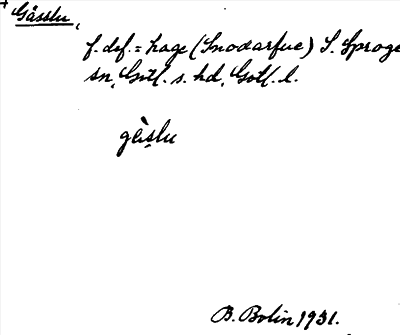 Gåsslu,
f. def. = hage (Snodarfue) S. Sproge
sn, Gotl. s. hd, Gotl. l.
gåslu
B. Bolin 1931.